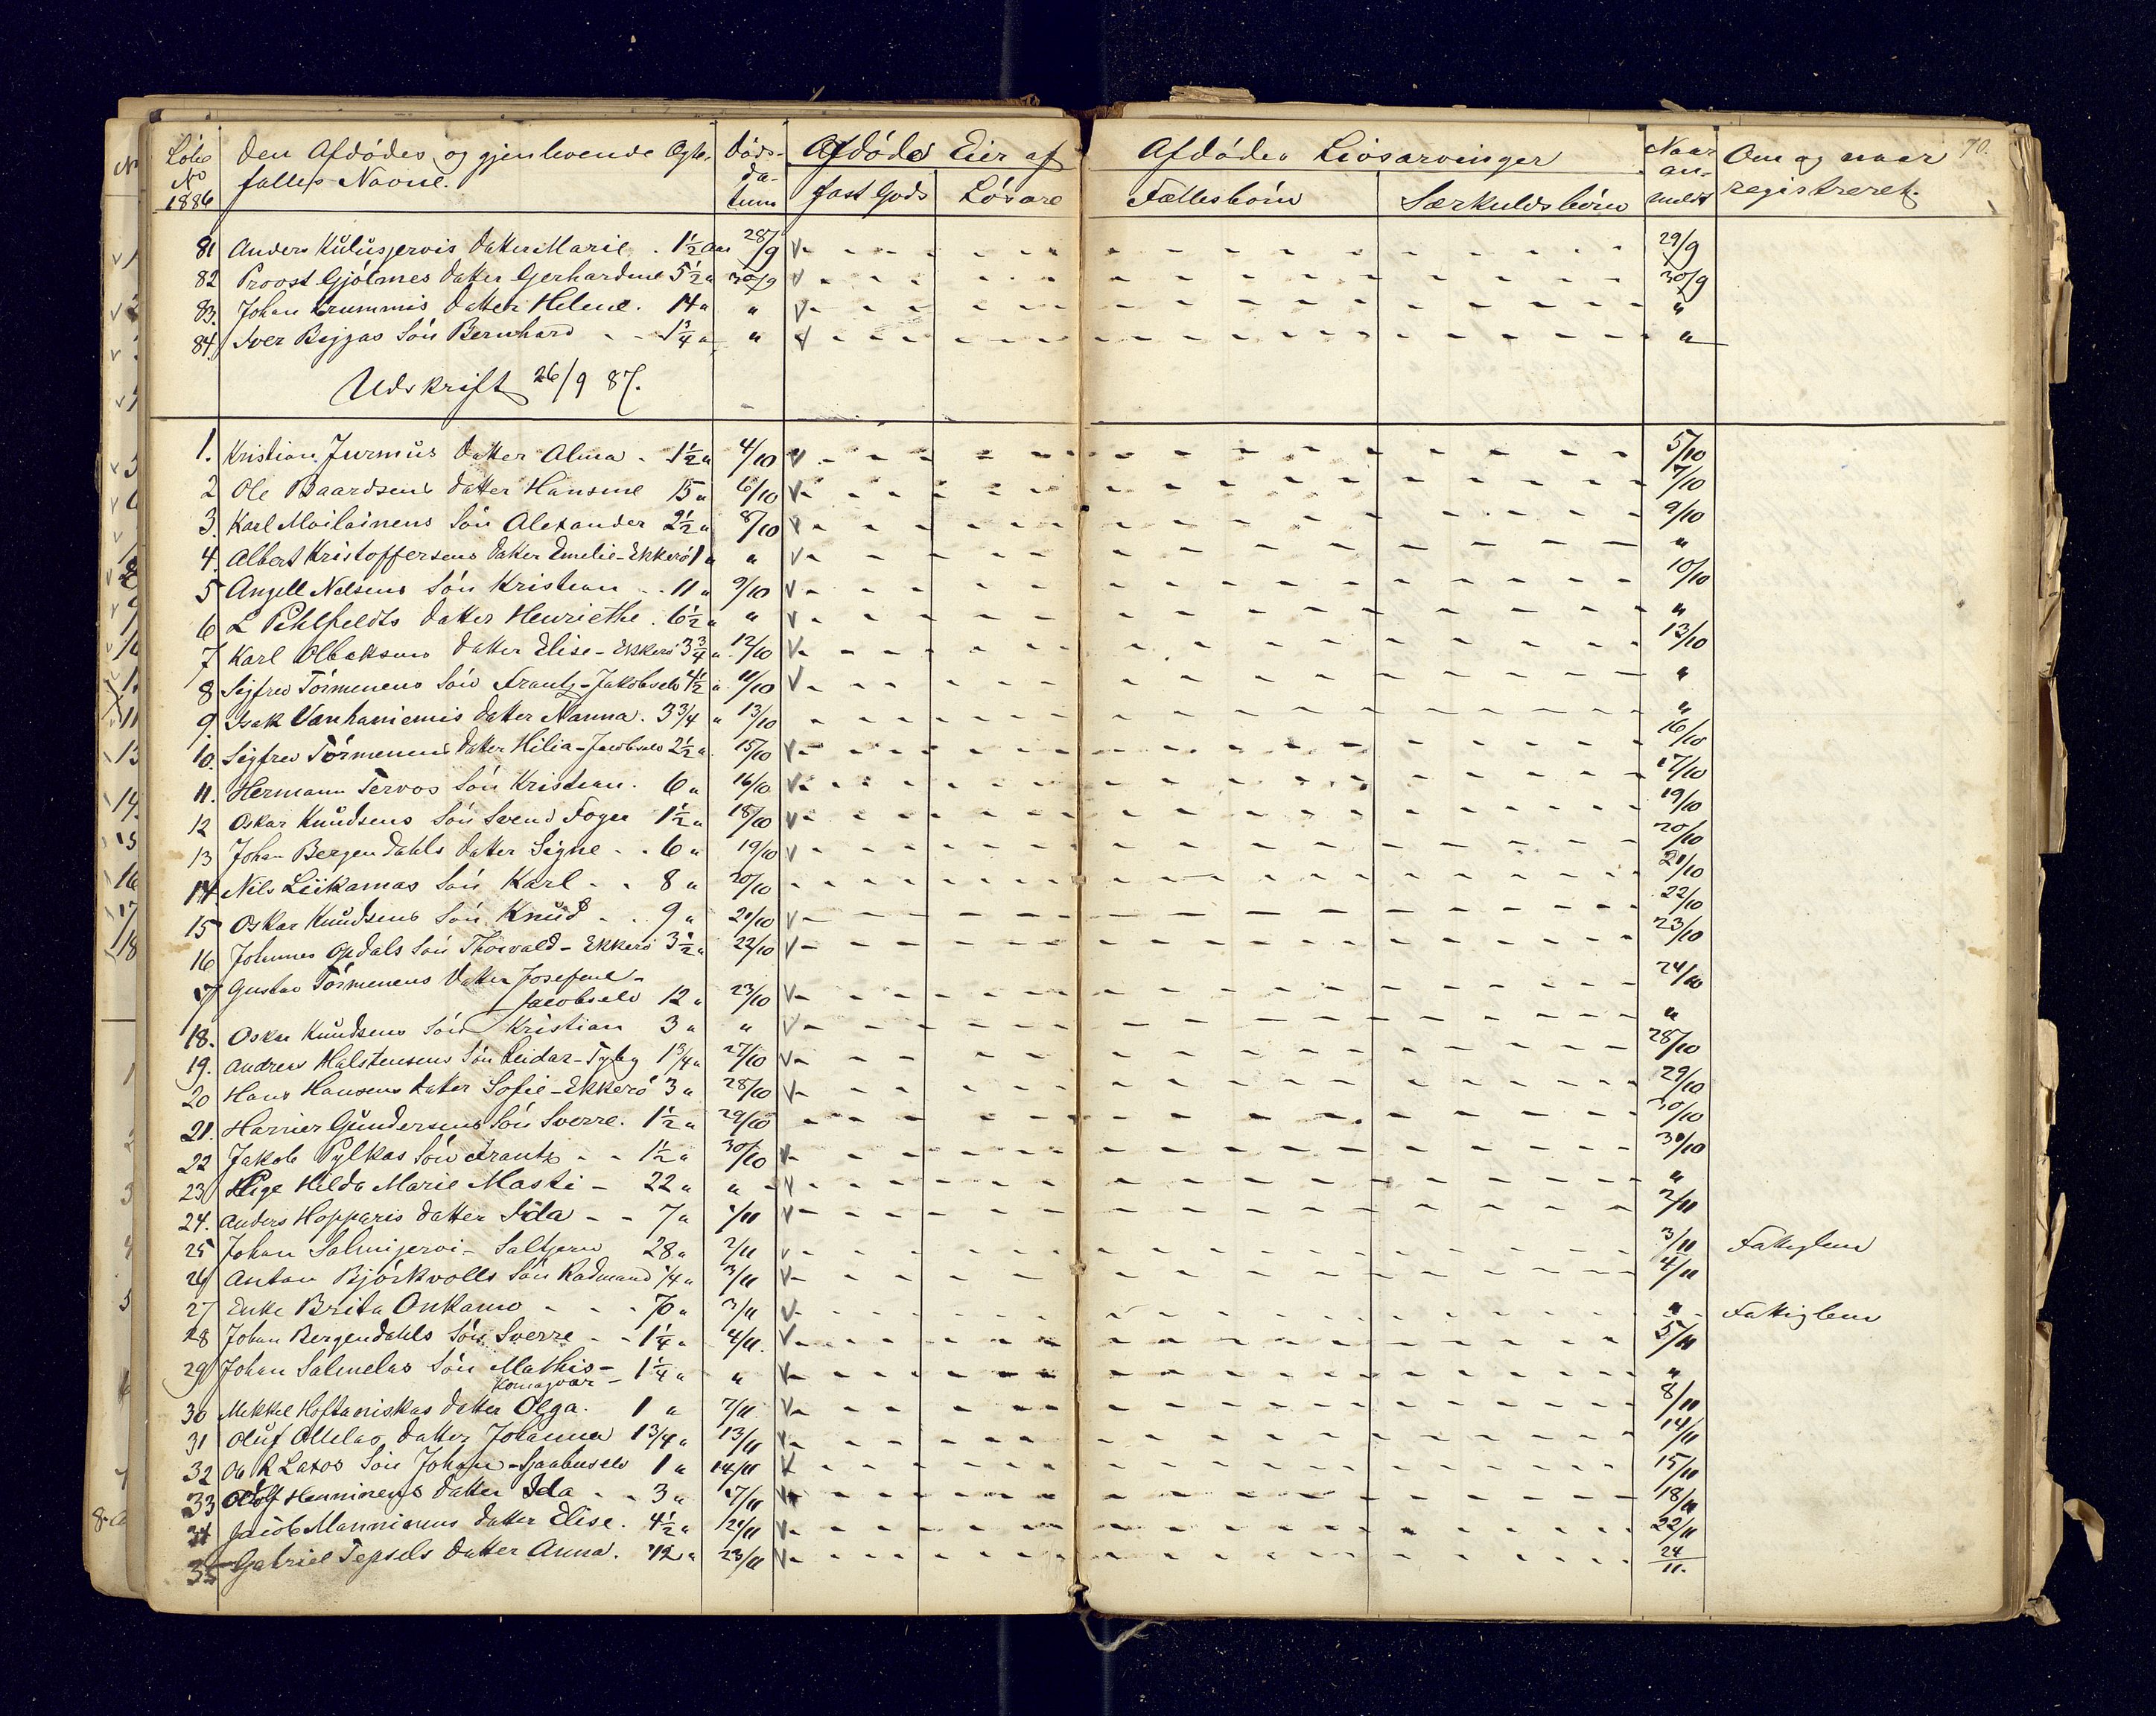 Löbe No 1886 | Den Afdödes og gjenlevende Ægte- fælles Navne. | Döds- da- tum | Afdöde Eier af | Afdödes Livsarvinger | Naar an- meldt | Om og naar registreret. 70.
fast Gods | Lösöre | Fællesbörn | Særkuldsbörn
81 Anders Kulusjervis Datter Marie . 1½ Aar 28/9 29/9
82 Provst Gjölmes Datter Gerhardine 5½ " 30/9 30/9
83. Johan Krummis Datter Helene . 14 " " "
84. Iver Biggas Sön Bernhard - - 1¾ " " "
Udskrift 26/9 87.
1. Kristian Jurmus Datter Alma - 1½ " 4/10 5/10
2 Ole Baardsens Datter Hansine 15 " 6/10 7/10
3. Karl Moilainens Sön Alexander 2½ " 8/10 9/10
4. Albert Kristoffersens Datter Emelie - Ekkerö 1 " " "
5 Angell Nelsens Sön Kristian - . 11 " 9/10 10/10
6 L Pihlfeldts Datter Henriethe . 6½ " " "
7 Karl Olbeksens Datter Elise - Ekkerö 3¾ " 12/10 13/10
8 Sigfred Törmenens Sön Frantz - Jakobselv 4½ " 11/10 "
9. Isak Vanhaniemis Datter Nanna . 3¾ " 13/10 "
10. Sigfred Törmenens Datter Hilia - Jacobselv 2½ " 15/10 16/10
11. Hermann Tervos Sön Kristian . 6 " 16/10 17/10
12 Oskar Knudsens Sön Svend Foyn 1½ " 18/10 19/10
13 Johan Bergendahls Datter Signe - . 6 " 19/10 20/10
14 Nils Liikamas Sön Karl - . 8 " 20/10 21/10
15 Oskar Knudsens Sön Knud - . . 9 " 21/10 22/10
16 Johannes Opdals Sön Thorvald - Ekkerö 3½ " 22/10 23/10
17 Gustav Törmenens Datter Josefine -
Jacobselv 12 " 23/10 24/10
18. Oskar Knudsens Sön Kristian 3 " " "
19. Andreas Halstensens Sön Reidar - Tyby 1¾ " 27/10 28/10
20 Hans Hansens Datter Sofie - Ekkerö 3 " 28/10 29/10
21. Harrier Gundersens Sön Sverre . 1½ " 29/10 30/10
22 Jakob Pylkas Sön Frantz - - 1½ " 30/10 31/10
23 Pige Hilda Marie Masti - 22 " " "
24. Anders Hopparis Datter Ida - - 7 " 1/11 2/11
25 Johan Salmijervi - Saltjern 28 " 2/11 3/11 Fattiglem
26 Anton Björkvolls Sön Radmand ¼ " 3/11 4/11
27 Enke Brita Onkamo - - - 70 " 3/11 " Fattiglem
28 Johan Bergendahls Sön Sverre - - 1¼ " 4/11 5/11
29 Johan Salmelas Sön Mathis - 1¼ " " "
Komagvær -
30 Mikkel Hoftaniskas Datter Olga . 1 " 7/11 8/11
31 Oluf Attilas Datter Johanna 1¾ " 13/11 14/11
32 Ole R Laxos Sön Johan - Sjaabuselv 1 " 14/11 15/11
33 Adolf Henninens Datter Ida - - 3 " 17/11 18/11
34 Jacob Manninens Datter Elise . 4½ " 21/11 22/11
35 Gabriel Tepsels Datter Anna . 12 " 23/11 24/11.